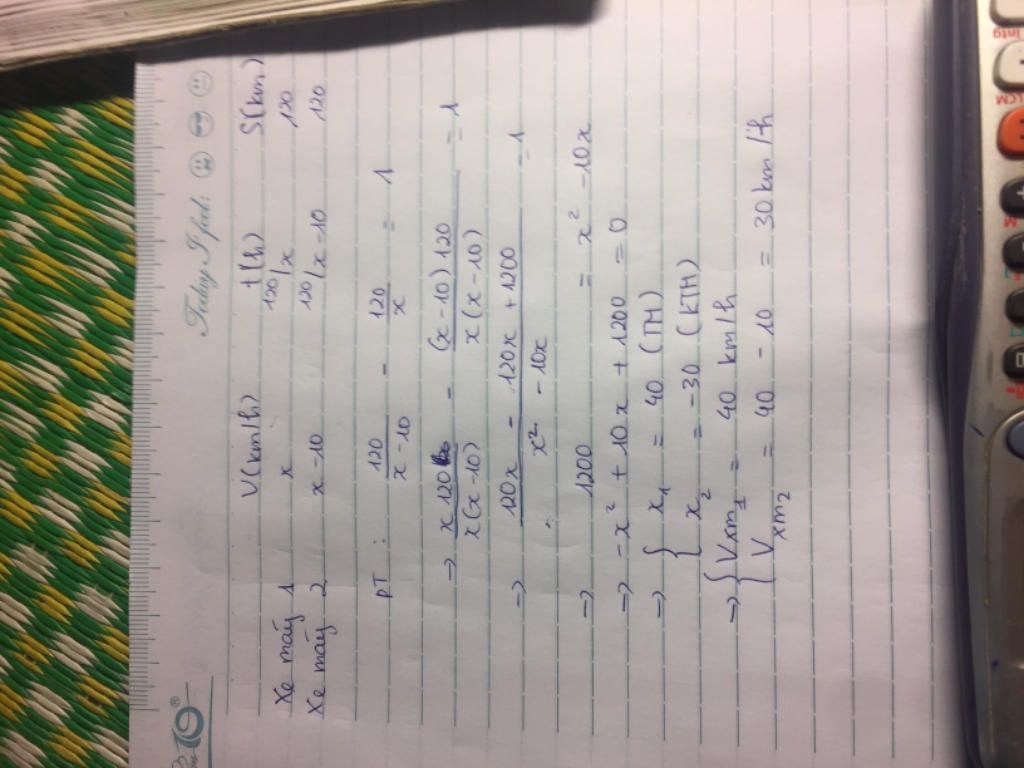 Today I feel:
V(km/h) t(h) S(km)
Xe máy 1 x 120/x 120
Xe máy 2 x-10 120/x-10 120
PT: 120/x-10 - 120/x = 1
→ x120/x(x-10) - (x-10)120/x(x-10) = 1
→ 120x - 120x + 1200/x² - 10x = 1
→ 1200 = x² - 10x
→ -x² + 10x + 1200 = 0
→ { x₁ = 40 (TM)
{ x₂ = -30 (KTM)
→ { Vxm₁ = 40 km/h
{ Vxm₂ = 40 - 10 = 30 km/h